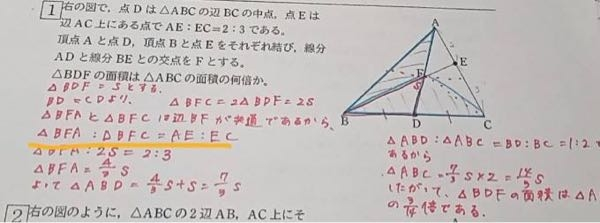 1 右の図で，点Dは△ABCの辺BCの中点，点Eは
辺AC上にある点でAE：EC=2：3である。
頂点Aと点D，頂点Bと点Eをそれぞれ結び，線分
ADと線分BEとの交点をFとする。
△BDFの面積は△ABCの面積の何倍か。
△BDF = Sとする。
BD=CDより、 △BFC = 2△BDF = 2S
△BFAと△BFCは辺BFが共通であるから、
△BFA：△BFC = AE：EC
△BFA：2S = 2：3
△BFA = 4/3 S
よって △ABD = 4/3 S + S = 7/3 S
A
E
F
S
B
D
C
△ABD：△ABC = BD：BC = 1：2で
あるから
△ABC = 7/3 S × 2 = 14/3 S
したがって、△BDFの面積は△A
の 3/14 倍である。
2 右の図のように，△ABCの2辺AB，AC上にそ